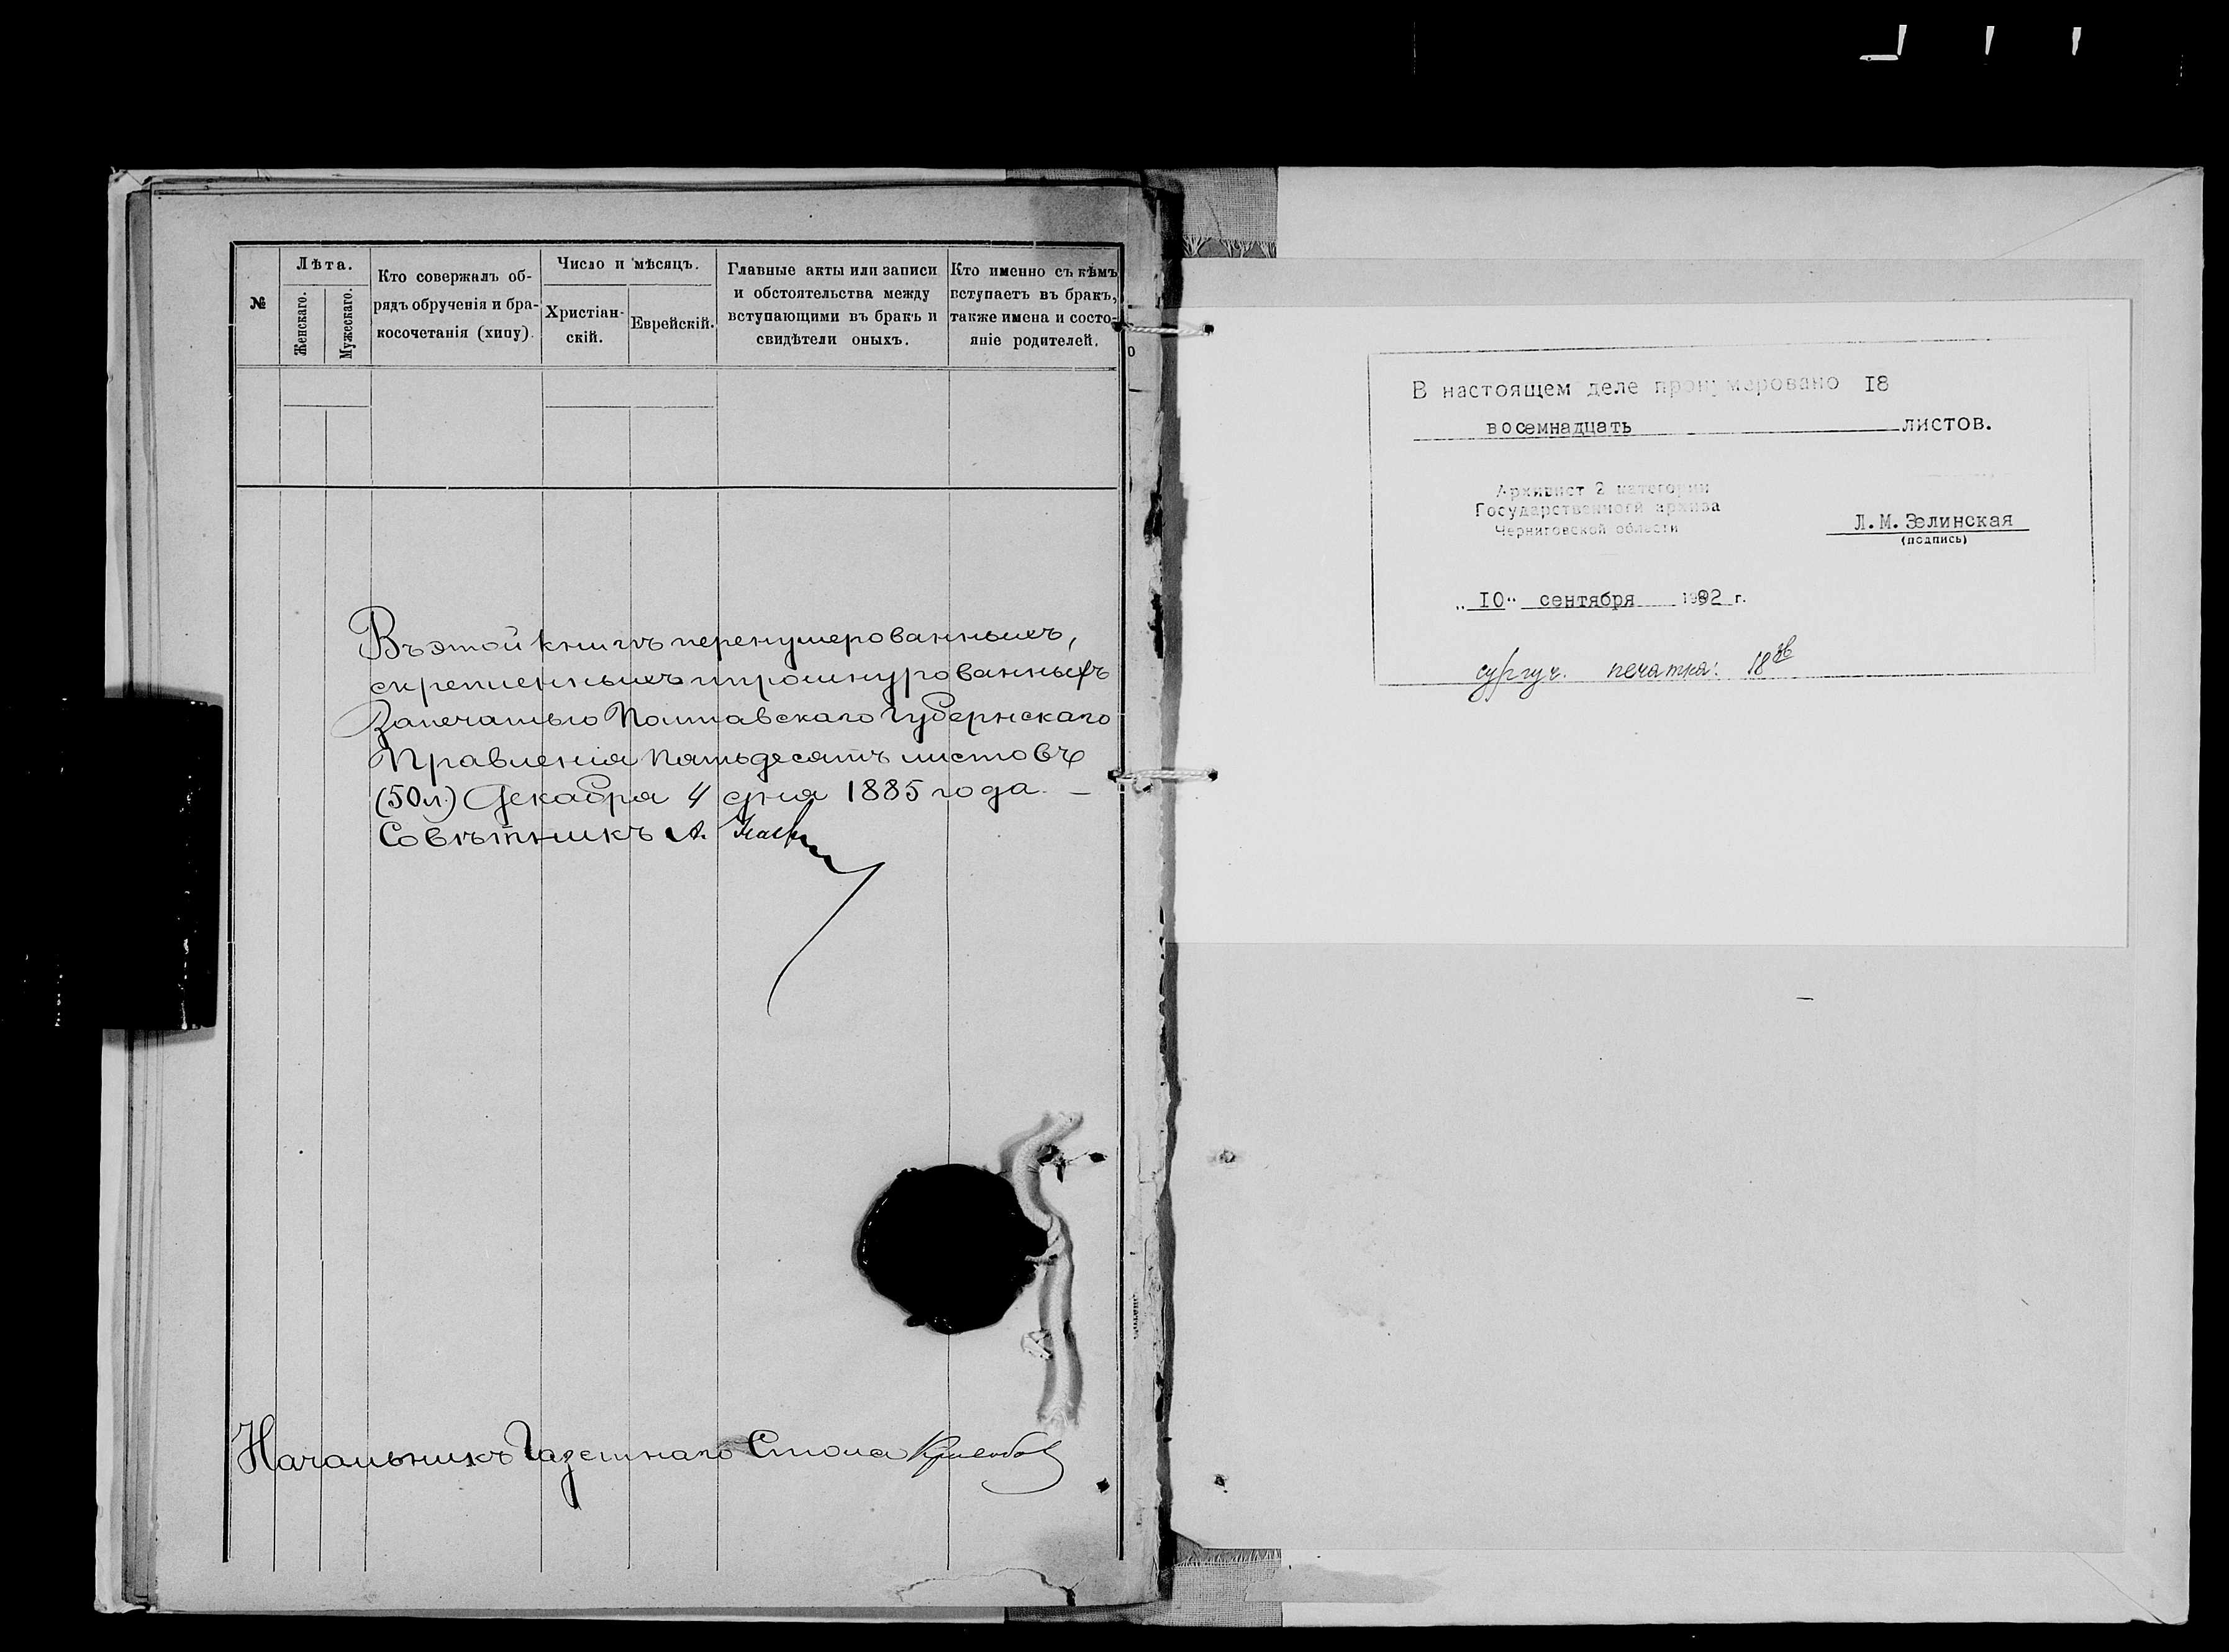 №
Лѣта.
Женскаго.
Мужескаго.
Кто совержалъ об-
рядъ обрученія и бра-
косочетанія (хипу).
Число и мѣсяцъ.
Христіан-
скій.
Еврейскій.
Главные акты или записи
и обстоятельства между
вступающими въ бракъ и
свидѣтели оныхъ.
Кто именно съ кѣмъ
вступаетъ въ бракъ,
также имена и состо-
яніе родителей.
Въ этой книгѣ перенумерованныхъ,
скрепленныхъ и прошнурованныхъ
За печатью Полтавскаго Губернскаго
Правленія пятьдесятъ листовъ
(50 л.) Декабря 4 дня 1885 года. —
Совѣтникъ А.
Начальникъ Газетнаго Стола
В настоящем деле пронумеровано 18
восемнадцать листов.
Архивист 2 категории
Государственного архива
Черниговской области
Л.М.Зелинская
(подпись)
„10" сентября 1992 г.
сургуч. печатка: 18